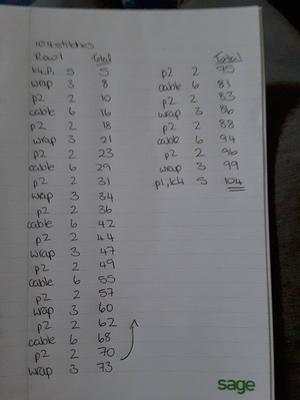 104 stitches
Row 1 Total
K4, P1 5 5
wrap 3 8
p2 2 10
cable 6 16
p2 2 18
wrap 3 21
p2 2 23
cable 6 29
p2 2 31
wrap 3 34
p2 2 36
cable 6 42
p2 2 44
wrap 3 47
p2 2 49
cable 6 55
p2 2 57
wrap 3 60
p2 2 62
cable 6 68
p2 2 70
wrap 3 73
Total
p2 2 75
cable 6 81
p2 2 83
wrap 3 86
p2 2 88
cable 6 94
p2 2 96
wrap 3 99
p1, k4 5 104
sage